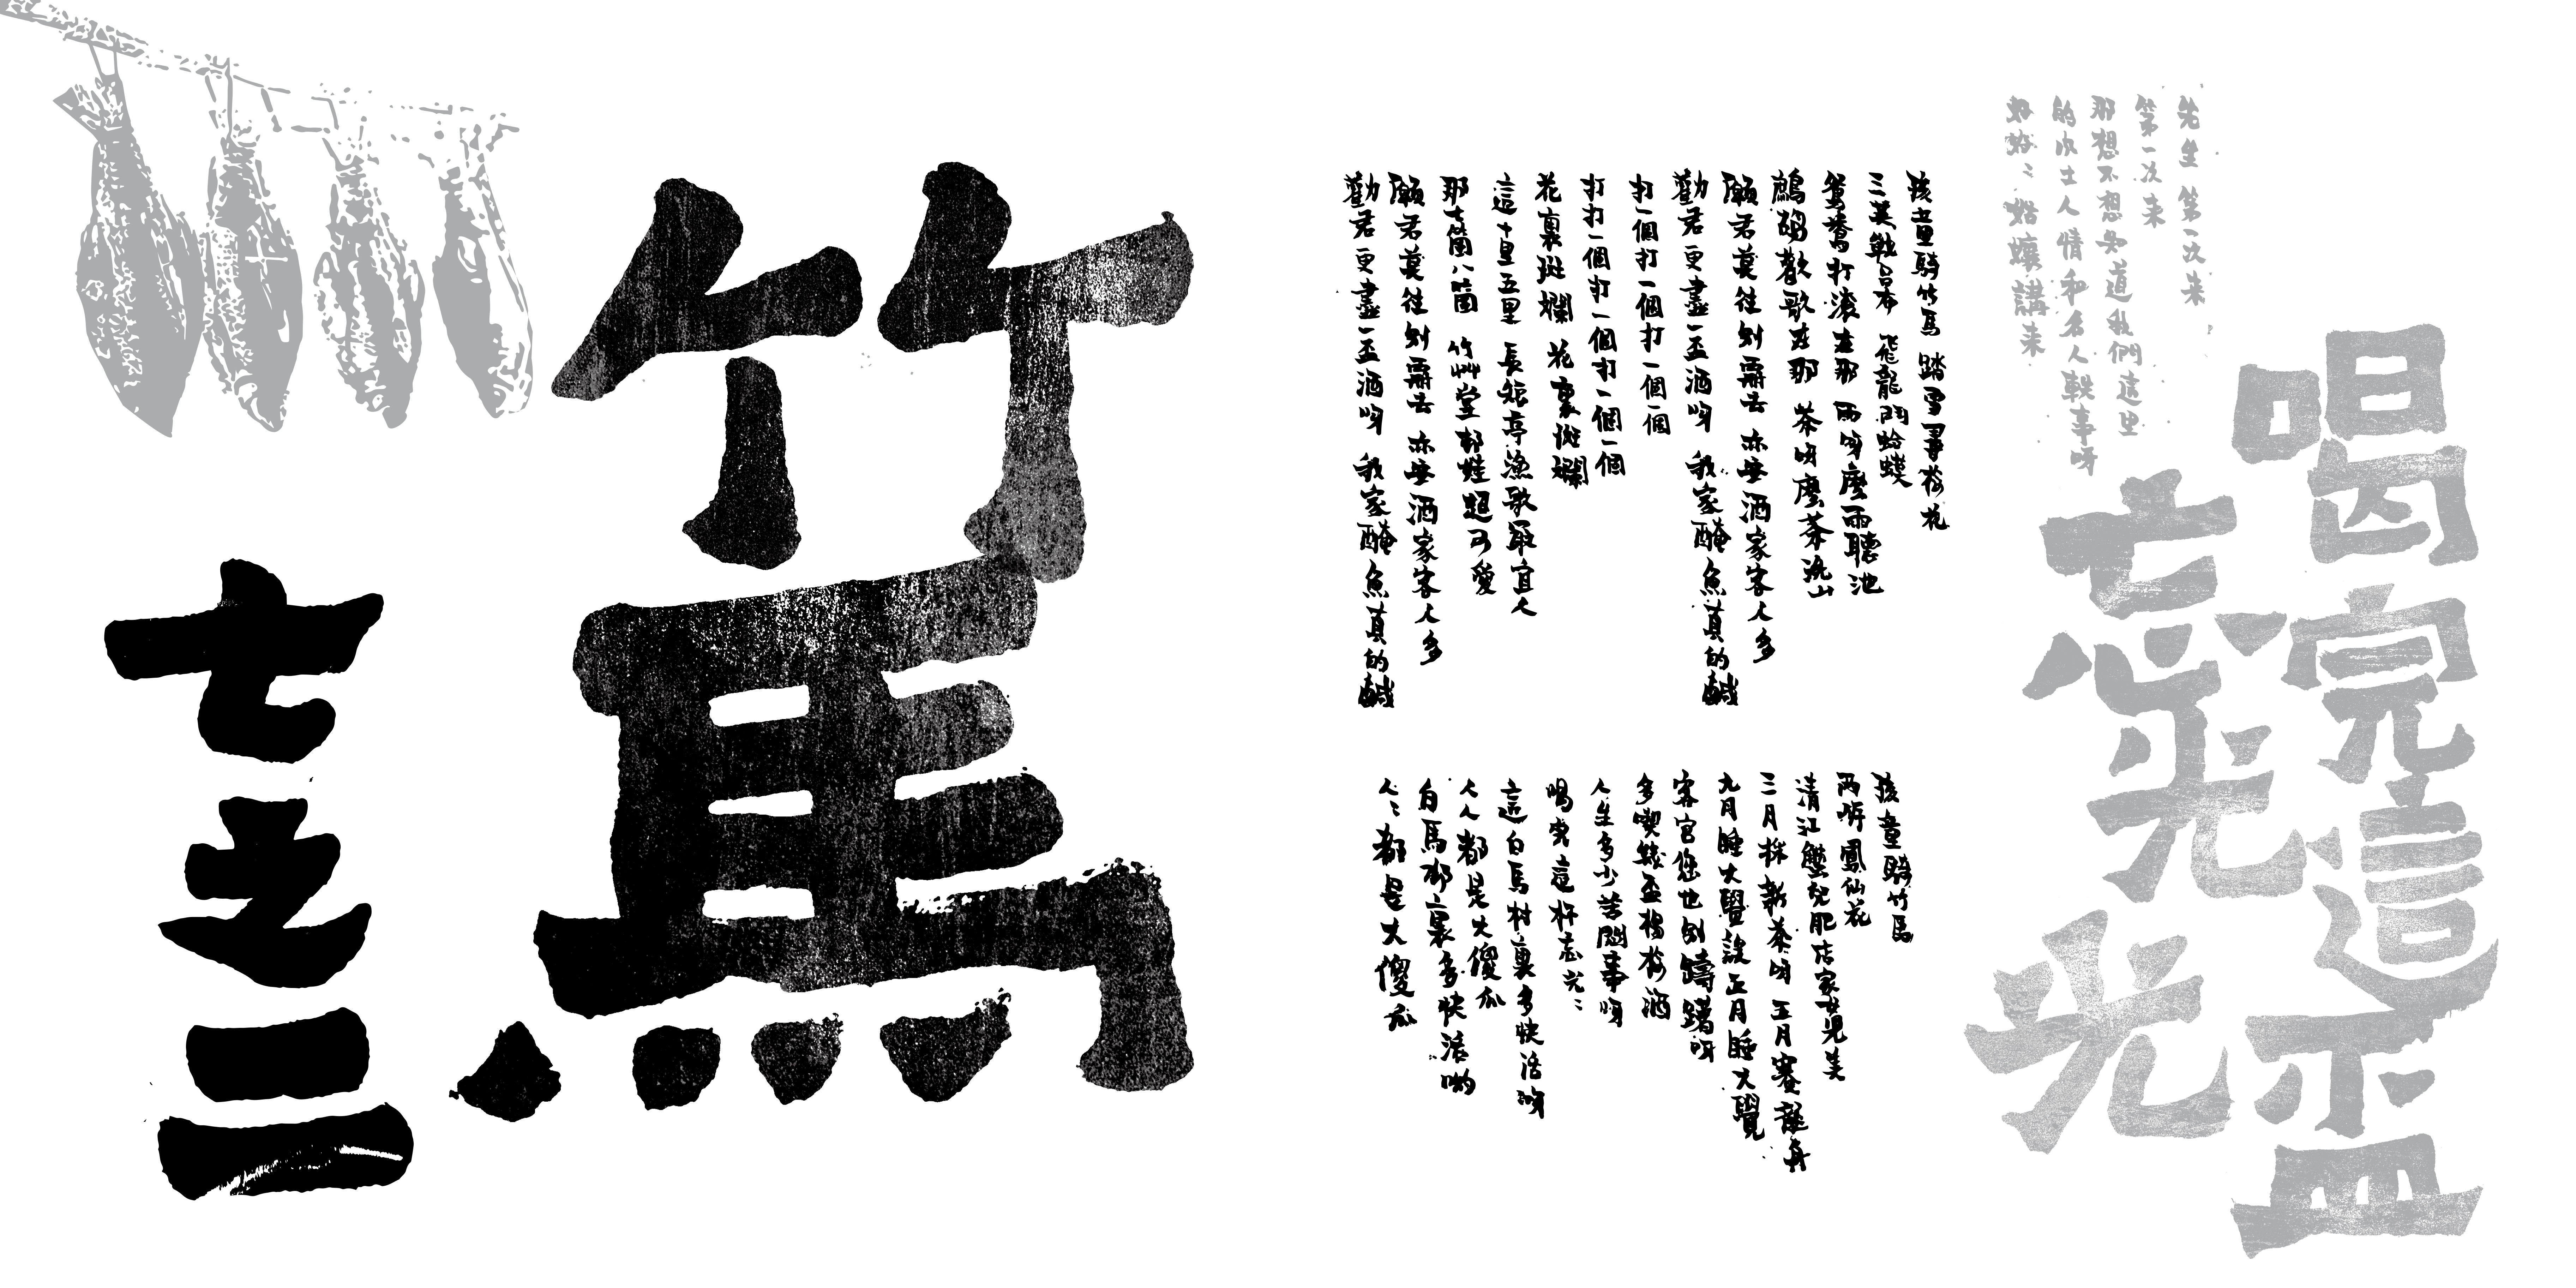 喝囚完這
不皿
亡心光光
先生 第一次来
第一次来
那想不想知道我們這里
的风土人情和名人軼事呀
好好〻姑孃講来
孩童騎竹馬 踏雪尋梅花
三英戰呂布 飛龍鬥蛤蟆
鴛鴦打滚在那 雨呀麼雨聽池
鷓鴣歡歌在那 茶呀麼茶洗山
願君莫往别處去 亦無酒家客人多
勸君更盡一盃酒呀 我家醃魚真的鹹
打一個打一個打一個一個
打打一個打一個打一個一個
花裏斑斕 花裏斑斕
這十里五里 長短亭漁歌最宜人
那七箇八箇 竹艸堂邨娃超可愛
願君莫往别處去 亦無酒家客人多
勸君更盡一盃酒呀 我家醃魚真的鹹
孩童騎竹馬
两岸鳳仙花
清江蟹兒肥店家女兒美
三月採新茶呀 五月賽龍舟
九月睡大覺說正月睡大覺
客官您也别躊躇呀
多喫幾盃楊梅酒
人生多少苦悶事呀
喝完這杯忘光〻
這白馬村裏多快活呀
人人都是大傻瓜
白馬邨裏多快活喲
人〻都是大傻瓜
竹馬
七之二